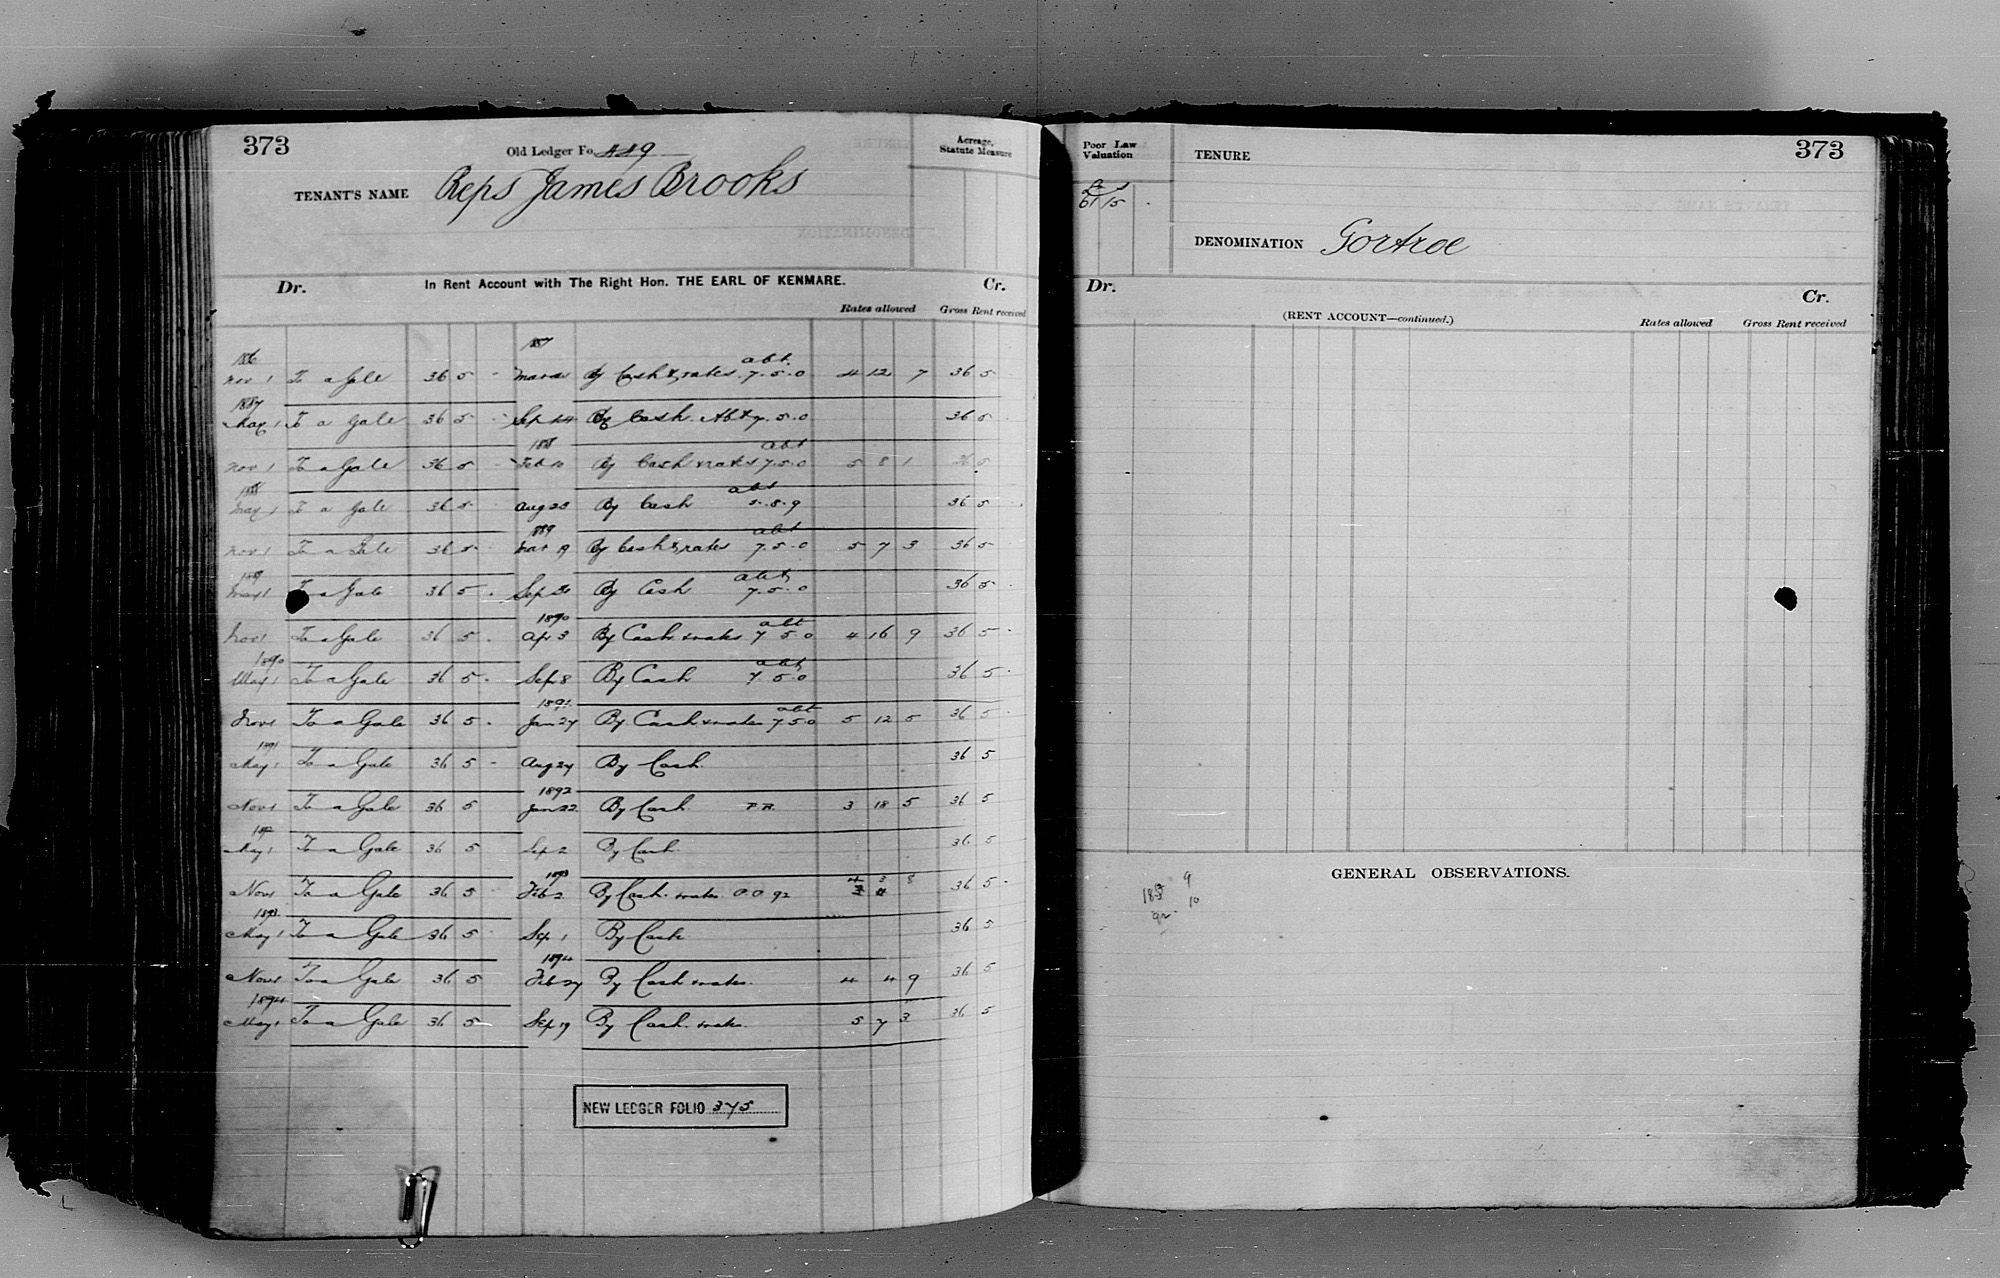 373
Old Ledger Fo.
TENANT'S NAME Reps James Brooks
Acreage,
Statute Measure
Dr. In Rent Account with The Right Hon. THE EARL OF KENMARE. Cr.
Rates allowed Gross Rent received
1887
1886 abt.
Nov 1 To a Gale 36 5 - By Cash & rates 7.5.0 4 12 7 36 5
1887
May 1 To a Gale 36 5 - Sep 24 By Cash Abt 7.5.0 36 5
1888 abt
Nov 1 To a Gale 36 5 - Feb 10 By Cash & rates 7.5.0 5 8 1 36 5
1888 abt
May 1 To a Gale 36 5 Aug 23 By Cash 5.8.9 36 5
1889 abt
Nov 1 To a Gale 36 5 Mar 19 By Cash & rates 7.5.0 5 7 3 36 5
1889 abt
May 1 To a Gale 36 5 Sep By Cash 7.5.0 36 5
1890 abt
Nov 1 To a Gale 36 5 Apr 3 By Cash & rates 7 5 0 4 16 9 36 5
1890 abt
May 1 To a Gale 36 5 Sep 8 By Cash 7.5.0 36 5
1891 abt
Nov 1 To a Gale 36 5 Jan 27 By Cash & rates 7 5 0 5 12 5 36 5
1891
May 1 To a Gale 36 5 - Aug 27 By Cash 36 5
1892
Nov 1 To a Gale 36 5 Jan 22 By Cash P.R. 3 18 5 36 5
1892
May 1 To a Gale 36 5 Sep 2 By Cash 36 5
1893
Nov 1 To a Gale 36 5 Feb 2 By Cash rates 4 3 8 36 5
1893
May 1 To a Gale 36 5 Sep 1 By Cash 36 5
1894
Nov 1 To a Gale 36 5 Feb 27 By Cash & rates 4 4 9 36 5
1894
May 1 To a Gale 36 5 Sep 19 By Cash & rates 5 7 3 36 5
NEW LEDGER FOLIO 375
Poor Law
Valuation
£ s
61 15
TENURE
373
DENOMINATION Gortroe
Dr. Cr.
(RENT ACCOUNT—continued.) Rates allowed Gross Rent received
GENERAL OBSERVATIONS.
9
10